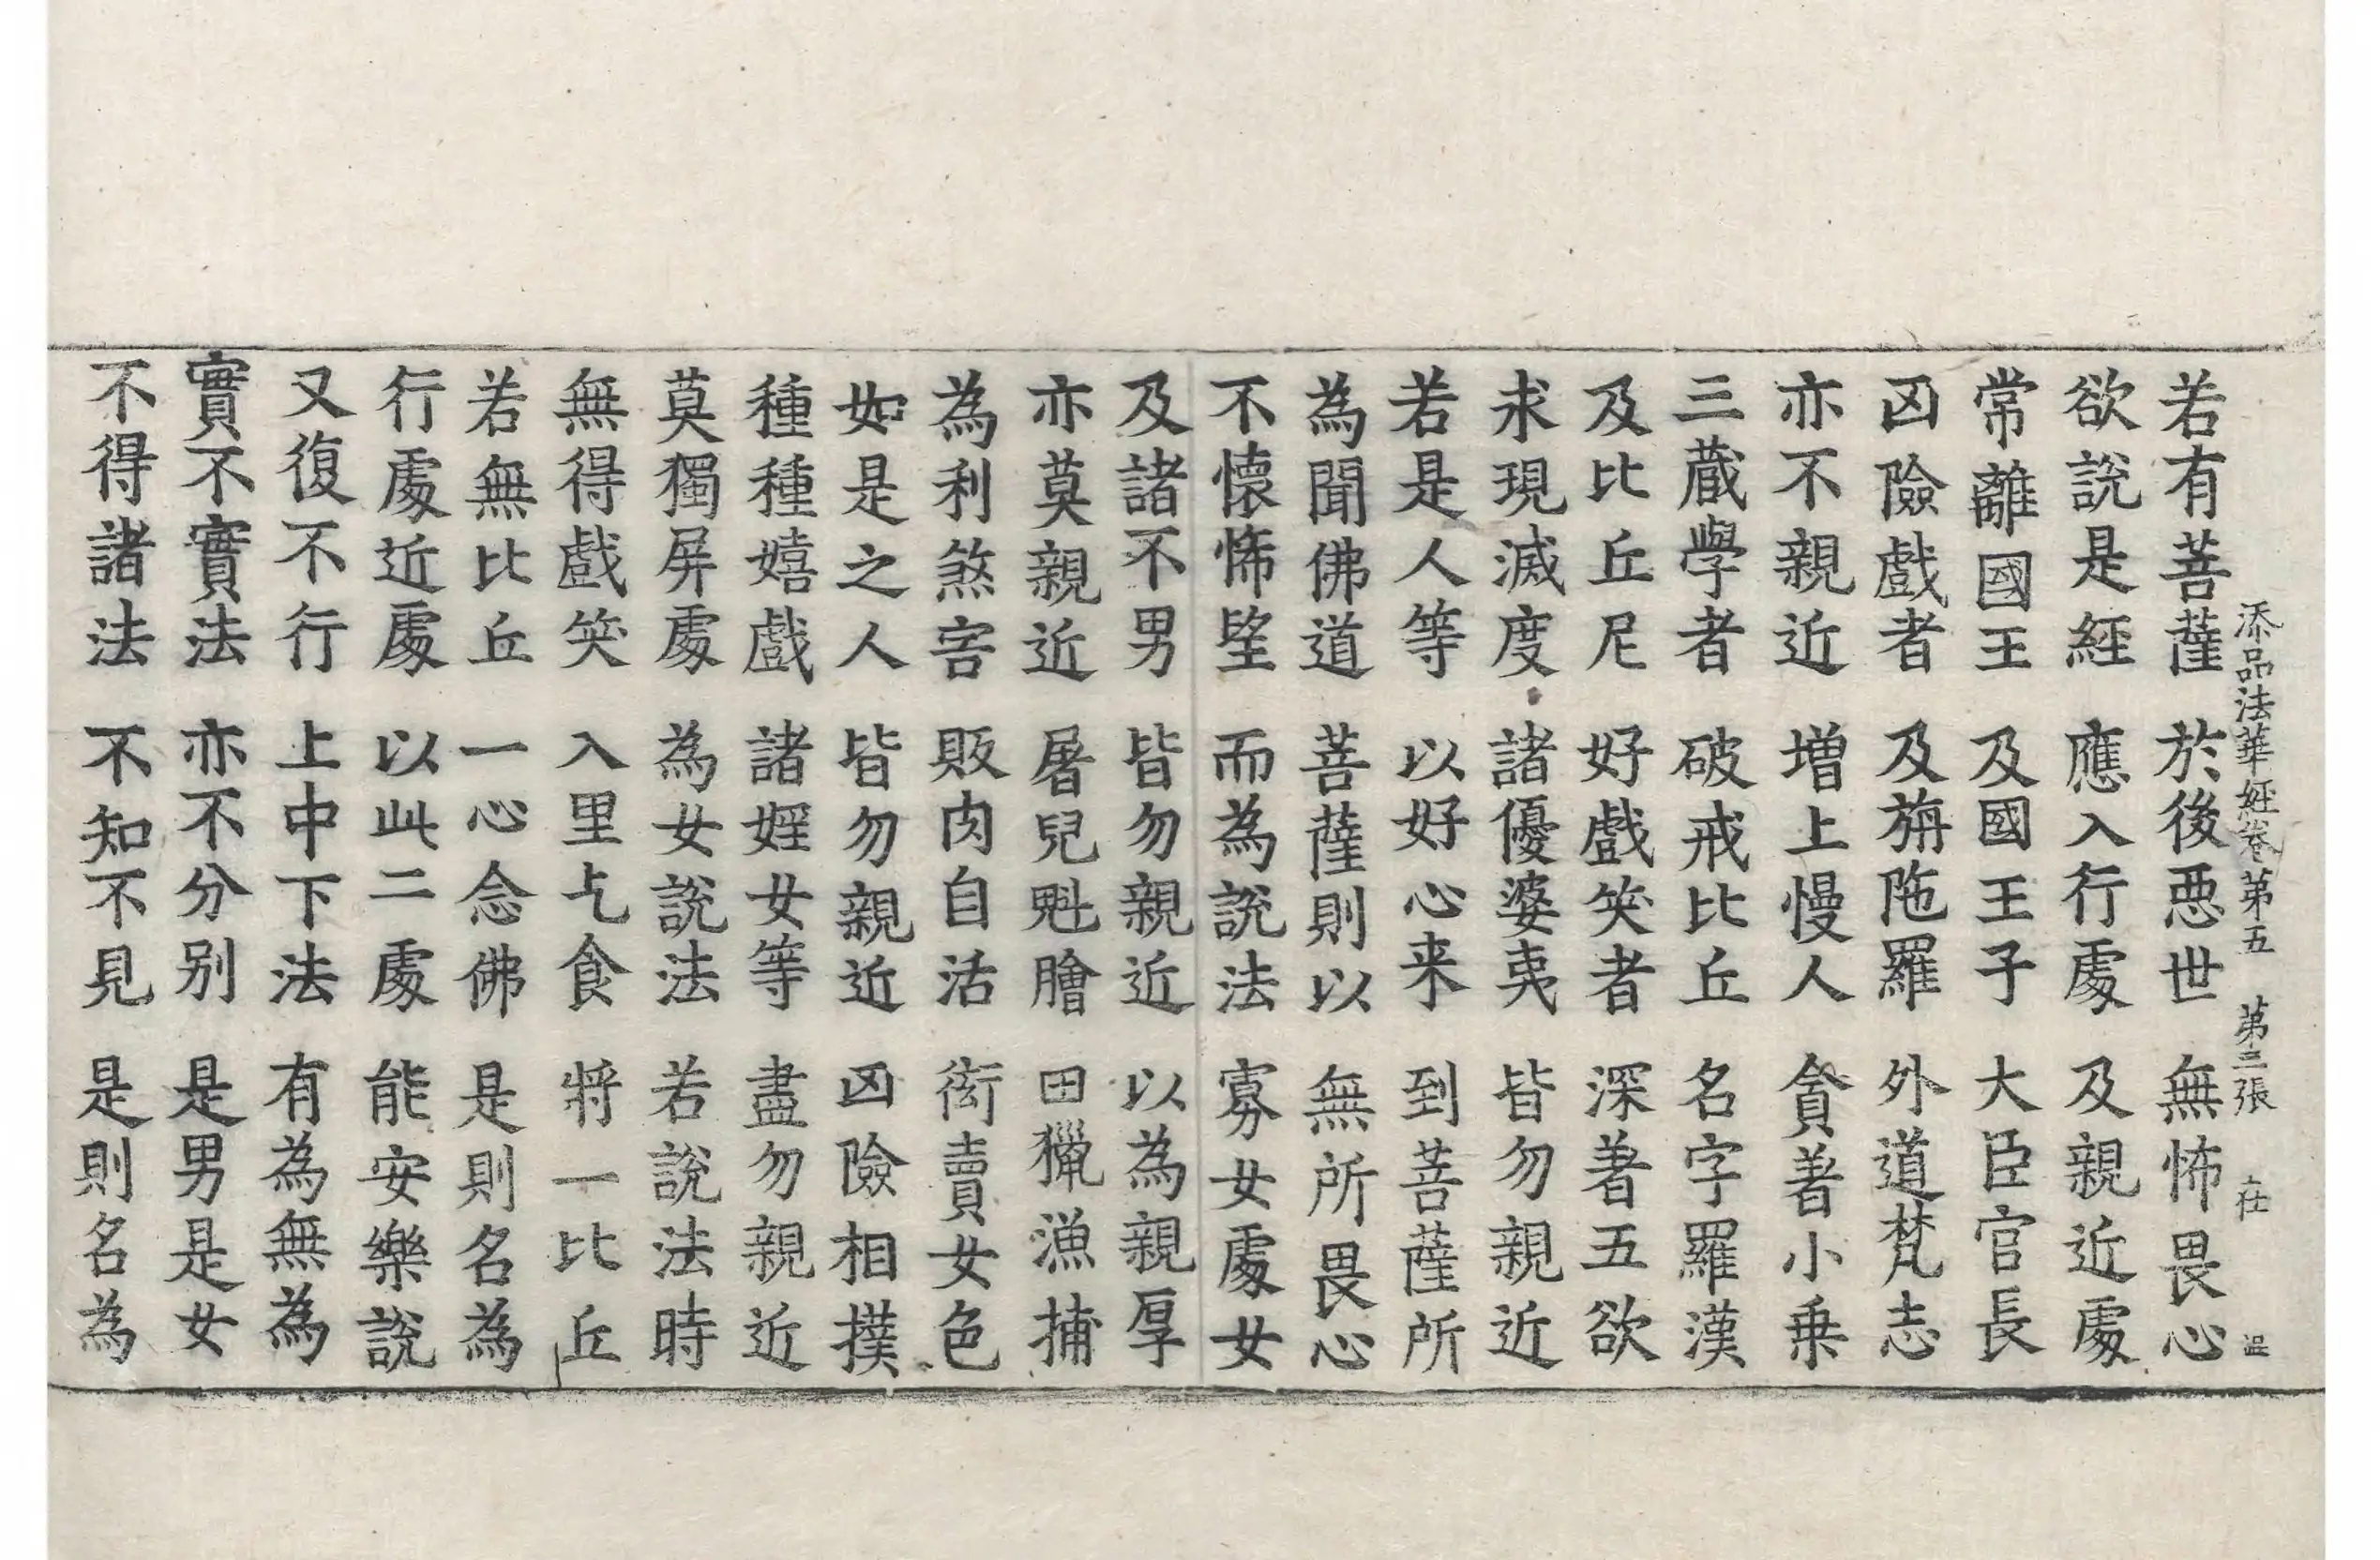 添品法華經卷第五　第三張　在
若有菩薩　於後惡世　無怖畏心
欲說是經　應入行處　及親近處
常離國王　及國王子　大臣官長
凶險戲者　及旃陁羅　外道梵志
亦不親近　增上慢人　貪著小乗
三蔵學者　破戒比丘　名字羅漢
及比丘尼　好戲笑者　深著五欲
求現滅度　諸優婆夷　皆勿親近
若是人等　以好心来　到菩薩所
為聞佛道　菩薩則以　無所畏心
不懷悕望　而為說法　寡女處女
及諸不男　皆勿親近　以為親厚
亦莫親近　屠兒魁膾　田獵漁捕
為利煞害　販肉自活　衒賣女色
如是之人　皆勿親近　凶險相撲
種種嬉戲　諸婬女等　盡勿親近
莫獨屏處　為女說法　若說法時
無得戲笑　入里乞食　將一比丘
若無比丘　一心念佛　是則名為
行處近處　以此二處　能安樂說
又復不行　上中下法　有為無為
實不實法　亦不分別　是男是女
不得諸法　不知不見　是則名為